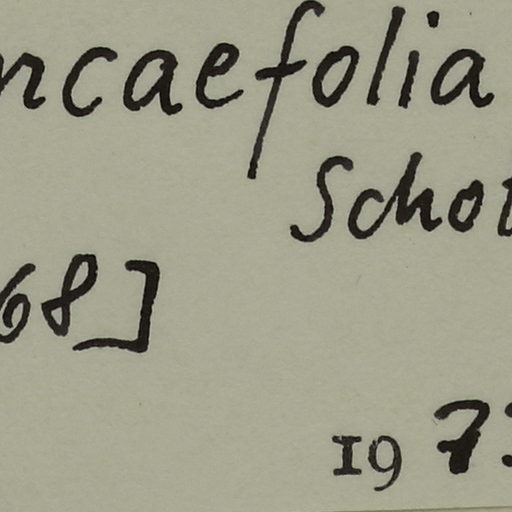 ncaefolia
Scho
68]
197